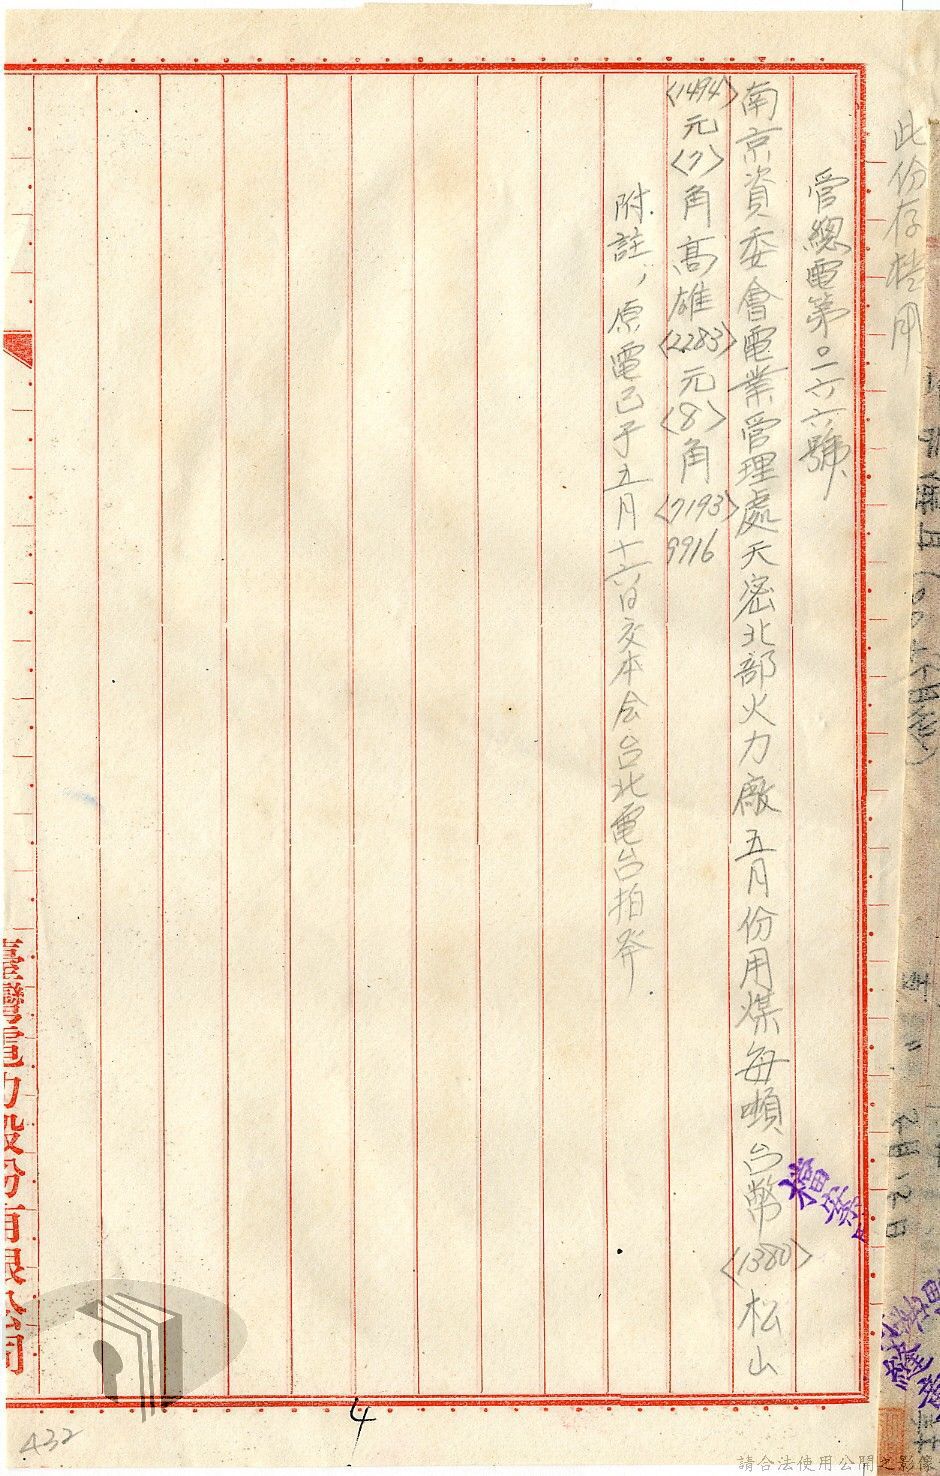 此份存檔用
管總電第〇二六六號
南京資委會電業管理處天密北部火力廠五月份用煤每噸台幣〈1380〉松山
〈1494〉元〈7〉角高雄〈2283〉元〈8〉角〈7193〉9916
附註,原電已于五月十六日交本会台北電台拍發
臺灣電力股份有限公司
4
432
請合法使用公開之影像